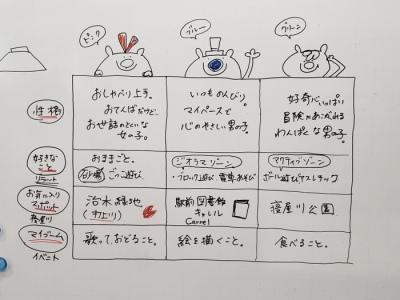 ピンク
ブルー
グリーン
性格
おしゃべり上手。
おてんばだけど、
お世話のといいな
女の子。
いつものんびり。
マイペースで
心のやさしい男の子。
好奇心いっぱい
冒険にあこがれる
わんぱくな男の子。
好きな
こと
おままごと。
砂場 ごっこ遊び
ジオラマゾーン
・ブロック遊び 電車あそび
アクティブゾーン
ボール遊び
お気に入り
スポット
寝屋川
治水緑地
駅前図書館
キャレル
Carrel
寝屋川公園
マイブーム
イベント
歌って、おどること。
絵を描くこと。
食べること。